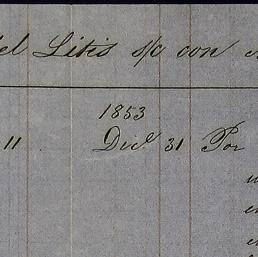 el Litis s/c con
1853
11 Dice 31 Por